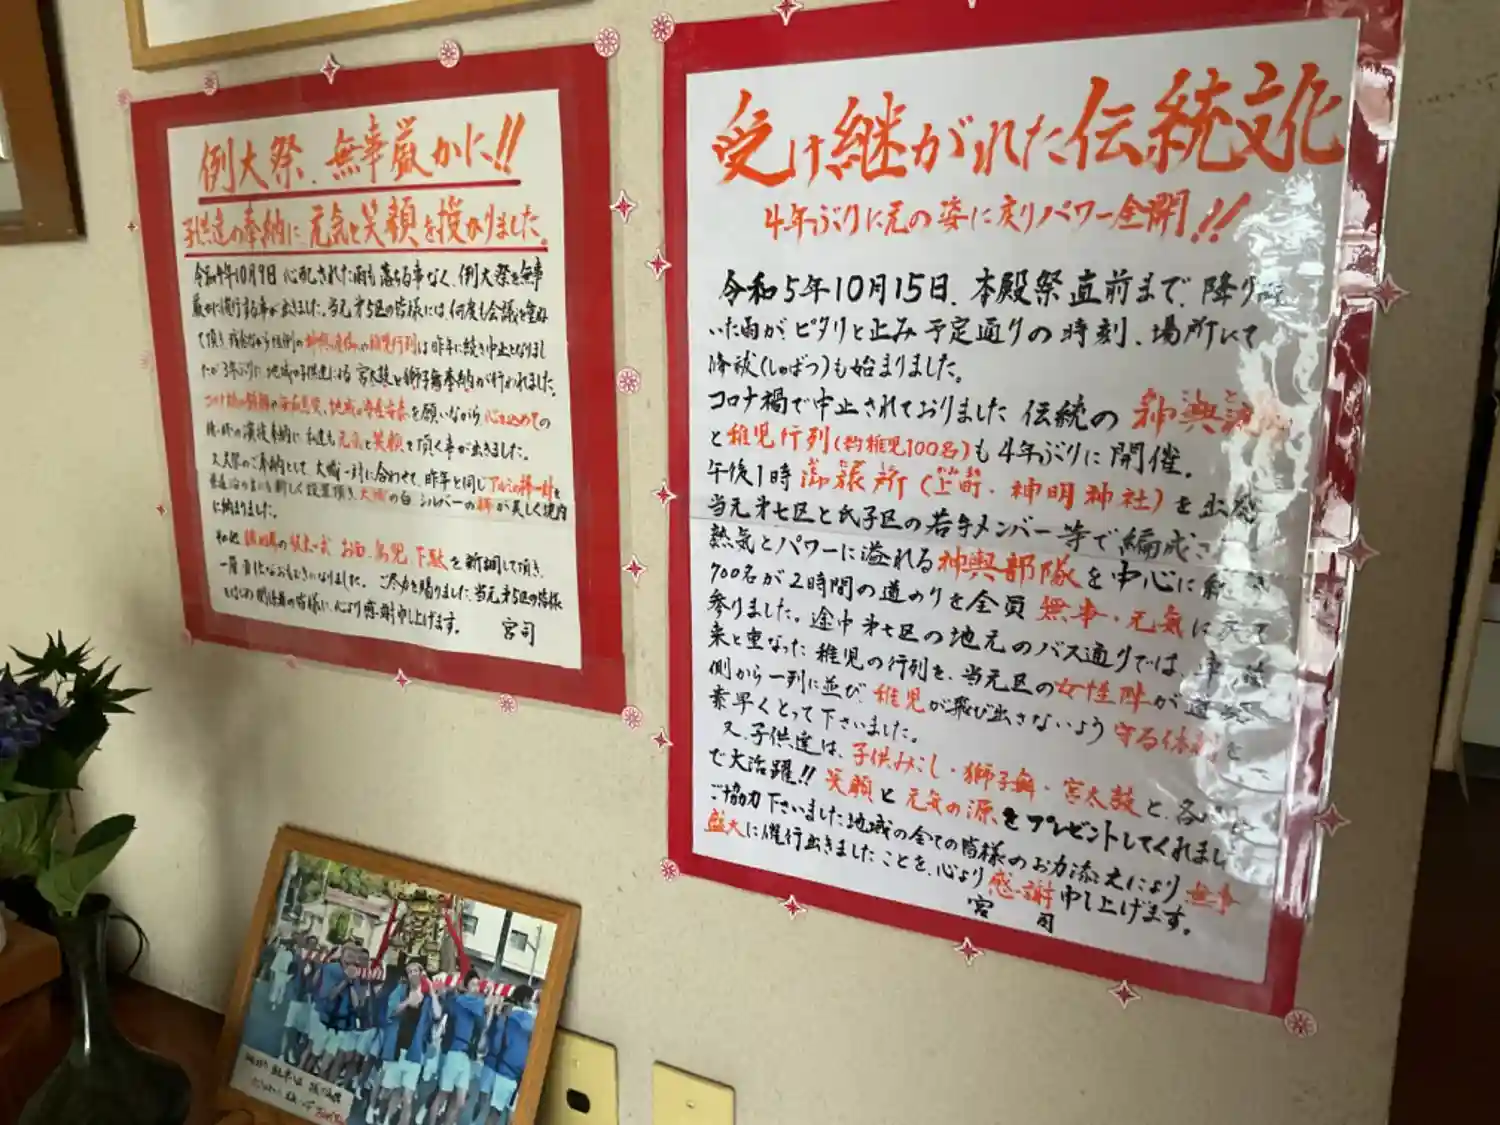 例大祭、無事厳かに!!
子供達の奉納に元気と笑顔を授かりました。
令和4年10月9日 心配された雨も落ちる事なく、例大祭を無事
厳かに斎行する事が出来ました。当元第5区の皆様には、何度も会議を重ね
て頂き 残念ながら恒例の神輿渡御や稚児行列は昨年に続き中止となりまし
たが 3年ぶりに地域の子供達による 宮太鼓と獅子舞奉納が行われました。
を願いながら 心を込めての
奉納に 私達も元気と笑顔を頂く事が出来ました。
として、大幟一対に合わせて、昨年と同じアルミの棒一対を
新しく設置頂き、大幟の白 シルバーの棒が美しく境内
に納まりました。
お面、鳥兜、下駄を新調して頂き、
ご尽力を賜りました、当元第5区の皆様
をはじめ関係者の皆様に、心より感謝申し上げます。
宮司
受け継がれた伝統文化
4年ぶりに元の姿に戻りパワー全開!!
令和5年10月15日、本殿祭直前まで、降り
いた雨がピタリと止み 予定通りの時刻、場所にて
修祓(しゅばつ)も始まりました。
コロナ禍で中止されておりました 伝統の 神輿渡
と稚児行列(約稚児100名)も4年ぶりに開催。
午後1時 御旅所(上町・神明神社)を出発
当元第七区と氏子区の若手メンバー等で編成さ
熱気とパワーに溢れる神輿部隊を中心に総
700名が2時間の道のりを全員 無事・元気に
参りました。途中第七区の地元のバス通りでは、車
来と重なった 稚児の行列を、当元区の女性陣が道
側から一列に並び、稚児が飛び出さないよう 守る体制を
素早くとって下さいました。
又、子供達は、子供みこし・獅子舞・宮太鼓と、各
で大活躍!! 笑顔と元気の源をプレゼントしてくれまし
ご協力下さいました地域の全ての皆様のお力添えにより 無事
盛大に催行出来ましたことを、心より感謝申し上げます。
宮司